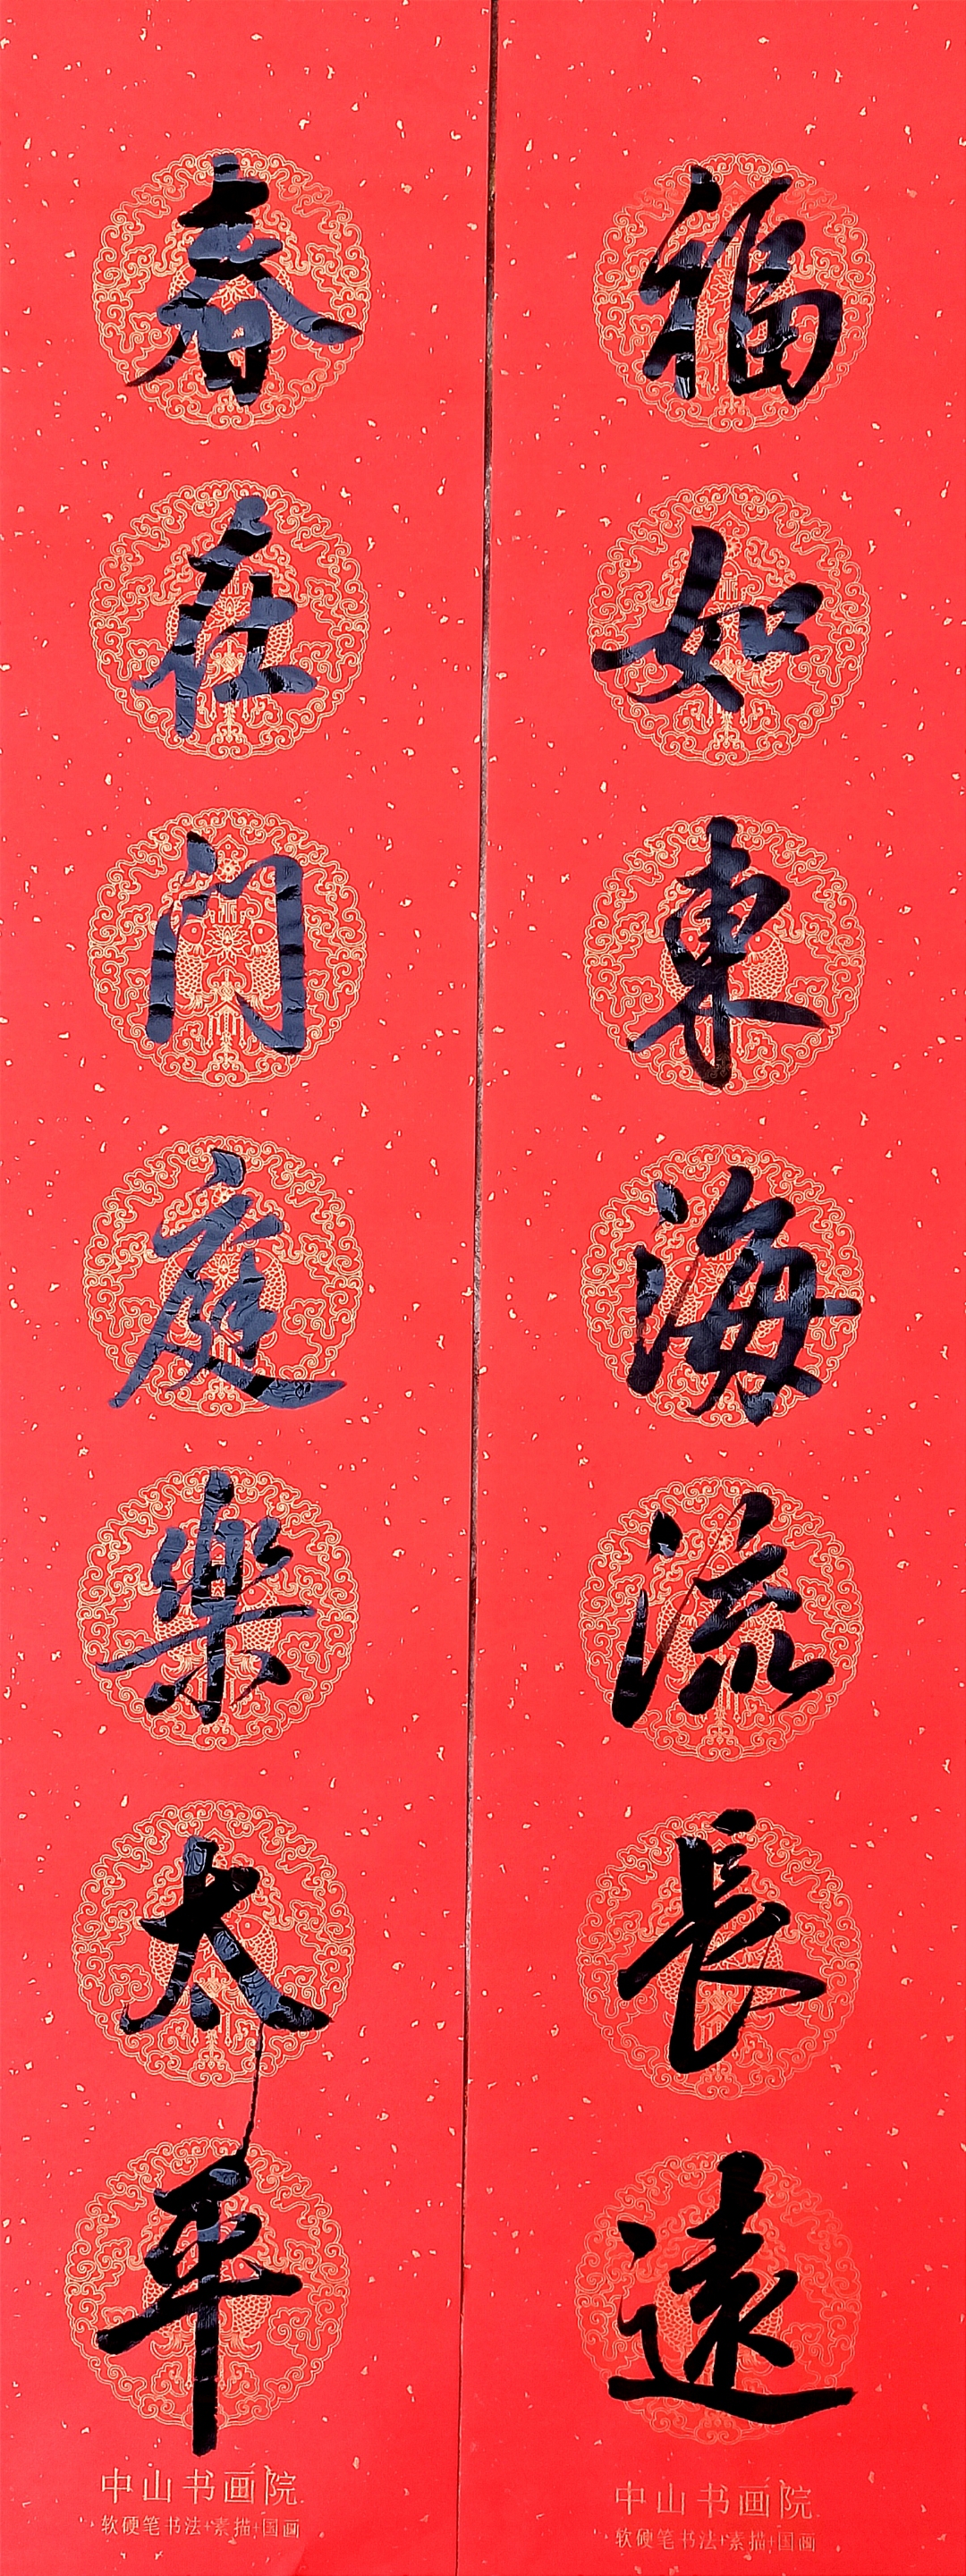 福如東海流長遠
春在门庭樂太平
中山书画院
软硬笔书法+素描+国画
中山书画院
软硬笔书法+素描+国画